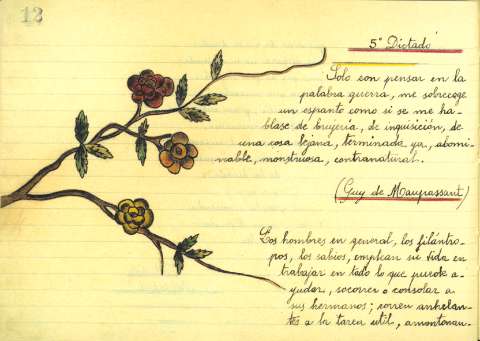 12
5º Dictado
Solo con pensar en la
palabra guerra, me sobrecoge
un espanto como si se me ha-
blase de brujeria, de inquisición, de
una cosa lejana, terminada ya, abomi-
nable, monstruosa, contranatural.
(Guy de Maupassant)
Los hombres en general, los filántro-
pos, los sabios, emplean su vida en
trabajar en todo lo que puede a-
yudar, socorrer o consolar a
sus hermanos; corren anhelan-
tes a la tarea util, amontonan-